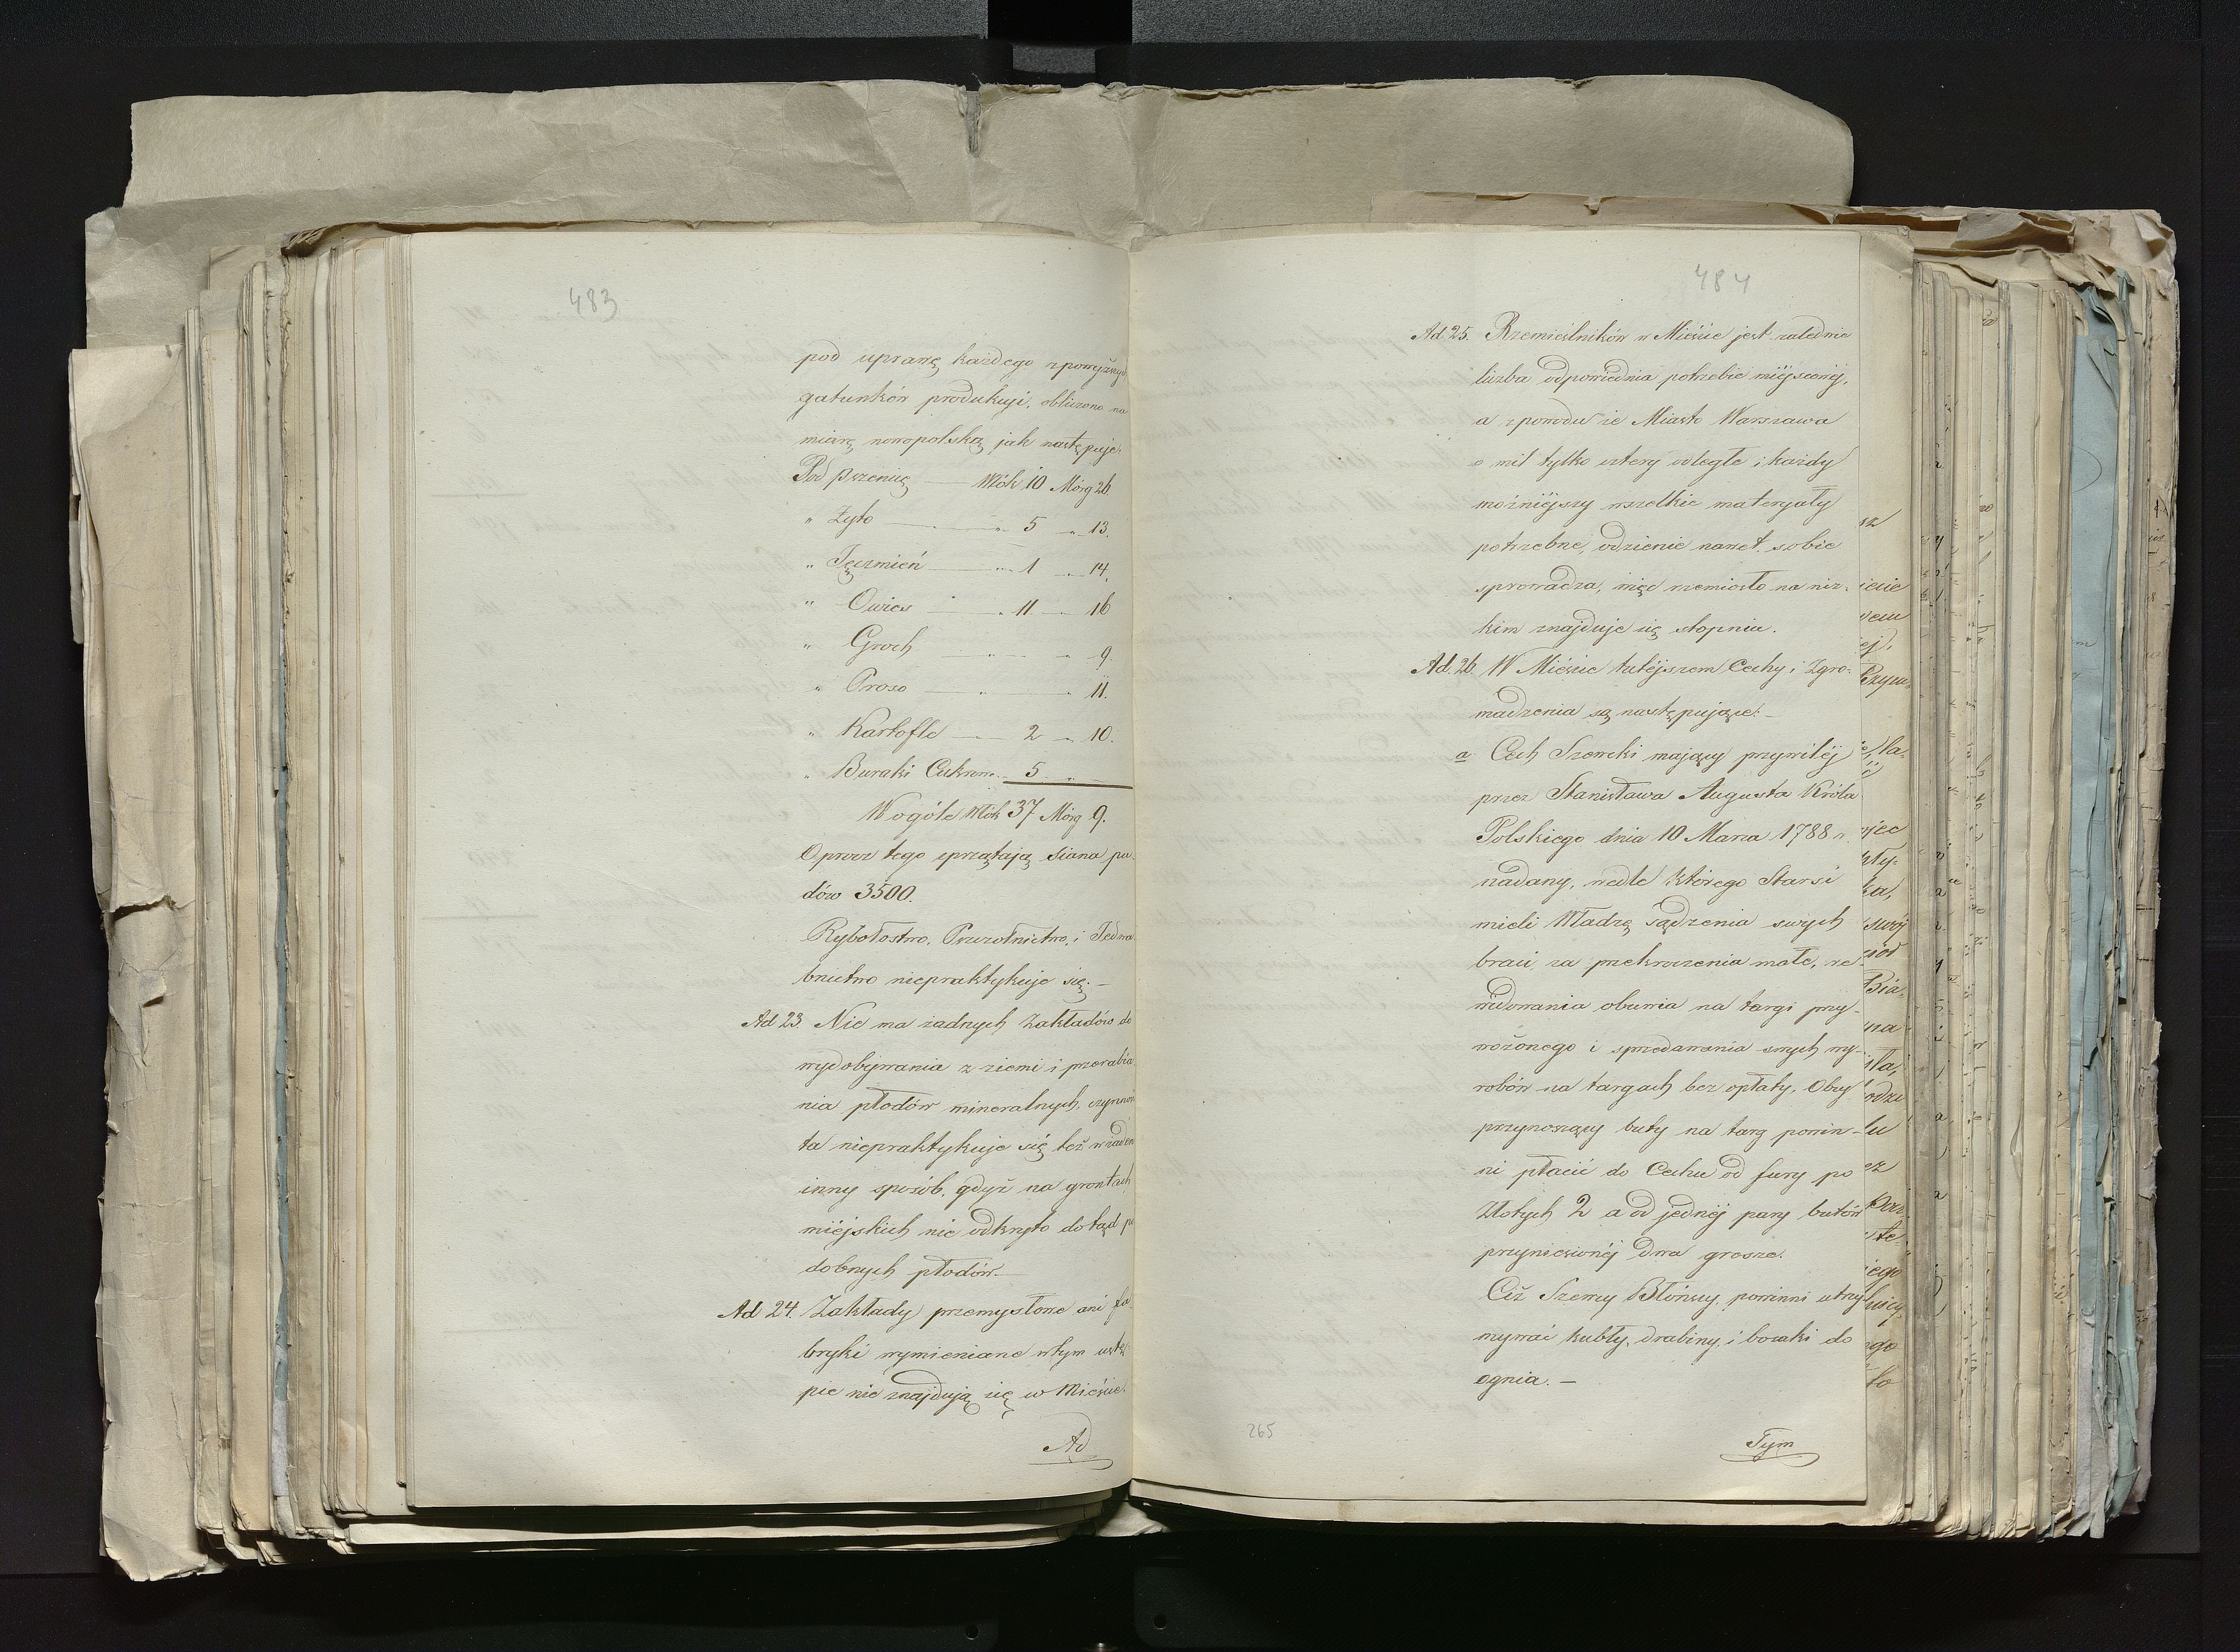 483
pod uprawę każdego z powyższych
gatunków produkcyi, obliczono na
miarę nowopolską jak następuje:
Pod pszenicę — Włók 10 Mórg 26.
" Żyto — " 5 " 13.
" Jęczmień — " 1 " 14.
" Owies — " 11 — 16
" Groch " " 9.
" Proso — " — 11.
" Kartofle — 2 " 10.
" Buraki Cukrow. 5 "
Wogóle Włók 37 Mórg 9.
Oprocz tego sprzątają siana pu-
dów 3500.
Rybołostwo, Pszczolnictwo, i Jedwa-
bnictwo niepraktykuje się. —
Ad 23. Nie ma żadnych Zakładów do
wydobywania z ziemi i przerabia-
nia płodów mineralnych, czynność
ta niepraktykuje się też w żaden
inny sposób, gdyż na grontach
miejskich nie odkryto dotąd po
dobnych płodów. —
Ad 24. Zakłady przemysłowe ani fa-
bryki wymieniane w tym ustę-
pie nie znajdują się w Mieście.
Ad
484
Ad. 25. Rzemieślników w Mieście jest zaledwie
liczba odpowiednia potrzebie miejscowéj,
a z powodu że Miasto Warszawa
o mil tylko cztery odległe i każdy
możniéjszy wszelkie materyały
potrzebne, odzienie nawet sobie
sprowadza, więc rzemiosło na niz-
kim znajduje się stopniu.
Ad. 26. W Mieście tutéjszem Cechy i Zgro-
madzenia są następujące: —
a Cech Szewcki mający przywiléj
przez Stanisława Augusta Króla
Polskiego dnia 10 Marca 1788 r.
nadany, wedle którego Starsi
mieli Władzę sądzenia swych
braci, za przekroczenia małe, re-
widowania obuwia na targi przy-
wożonego i sprzedawania swych wy-
robów na targach bez opłaty. Obcy
przynoszący buty na targ powin-
ni płacić do Cechu od fury po
Złotych 2 a od jednéj pary butów
przyniesionéj dwa grosze.
Ciż Szewcy Błońscy, powinni utrzy-
mywać kubły, drabiny, i bosaki do
ognia. —
265
Tym